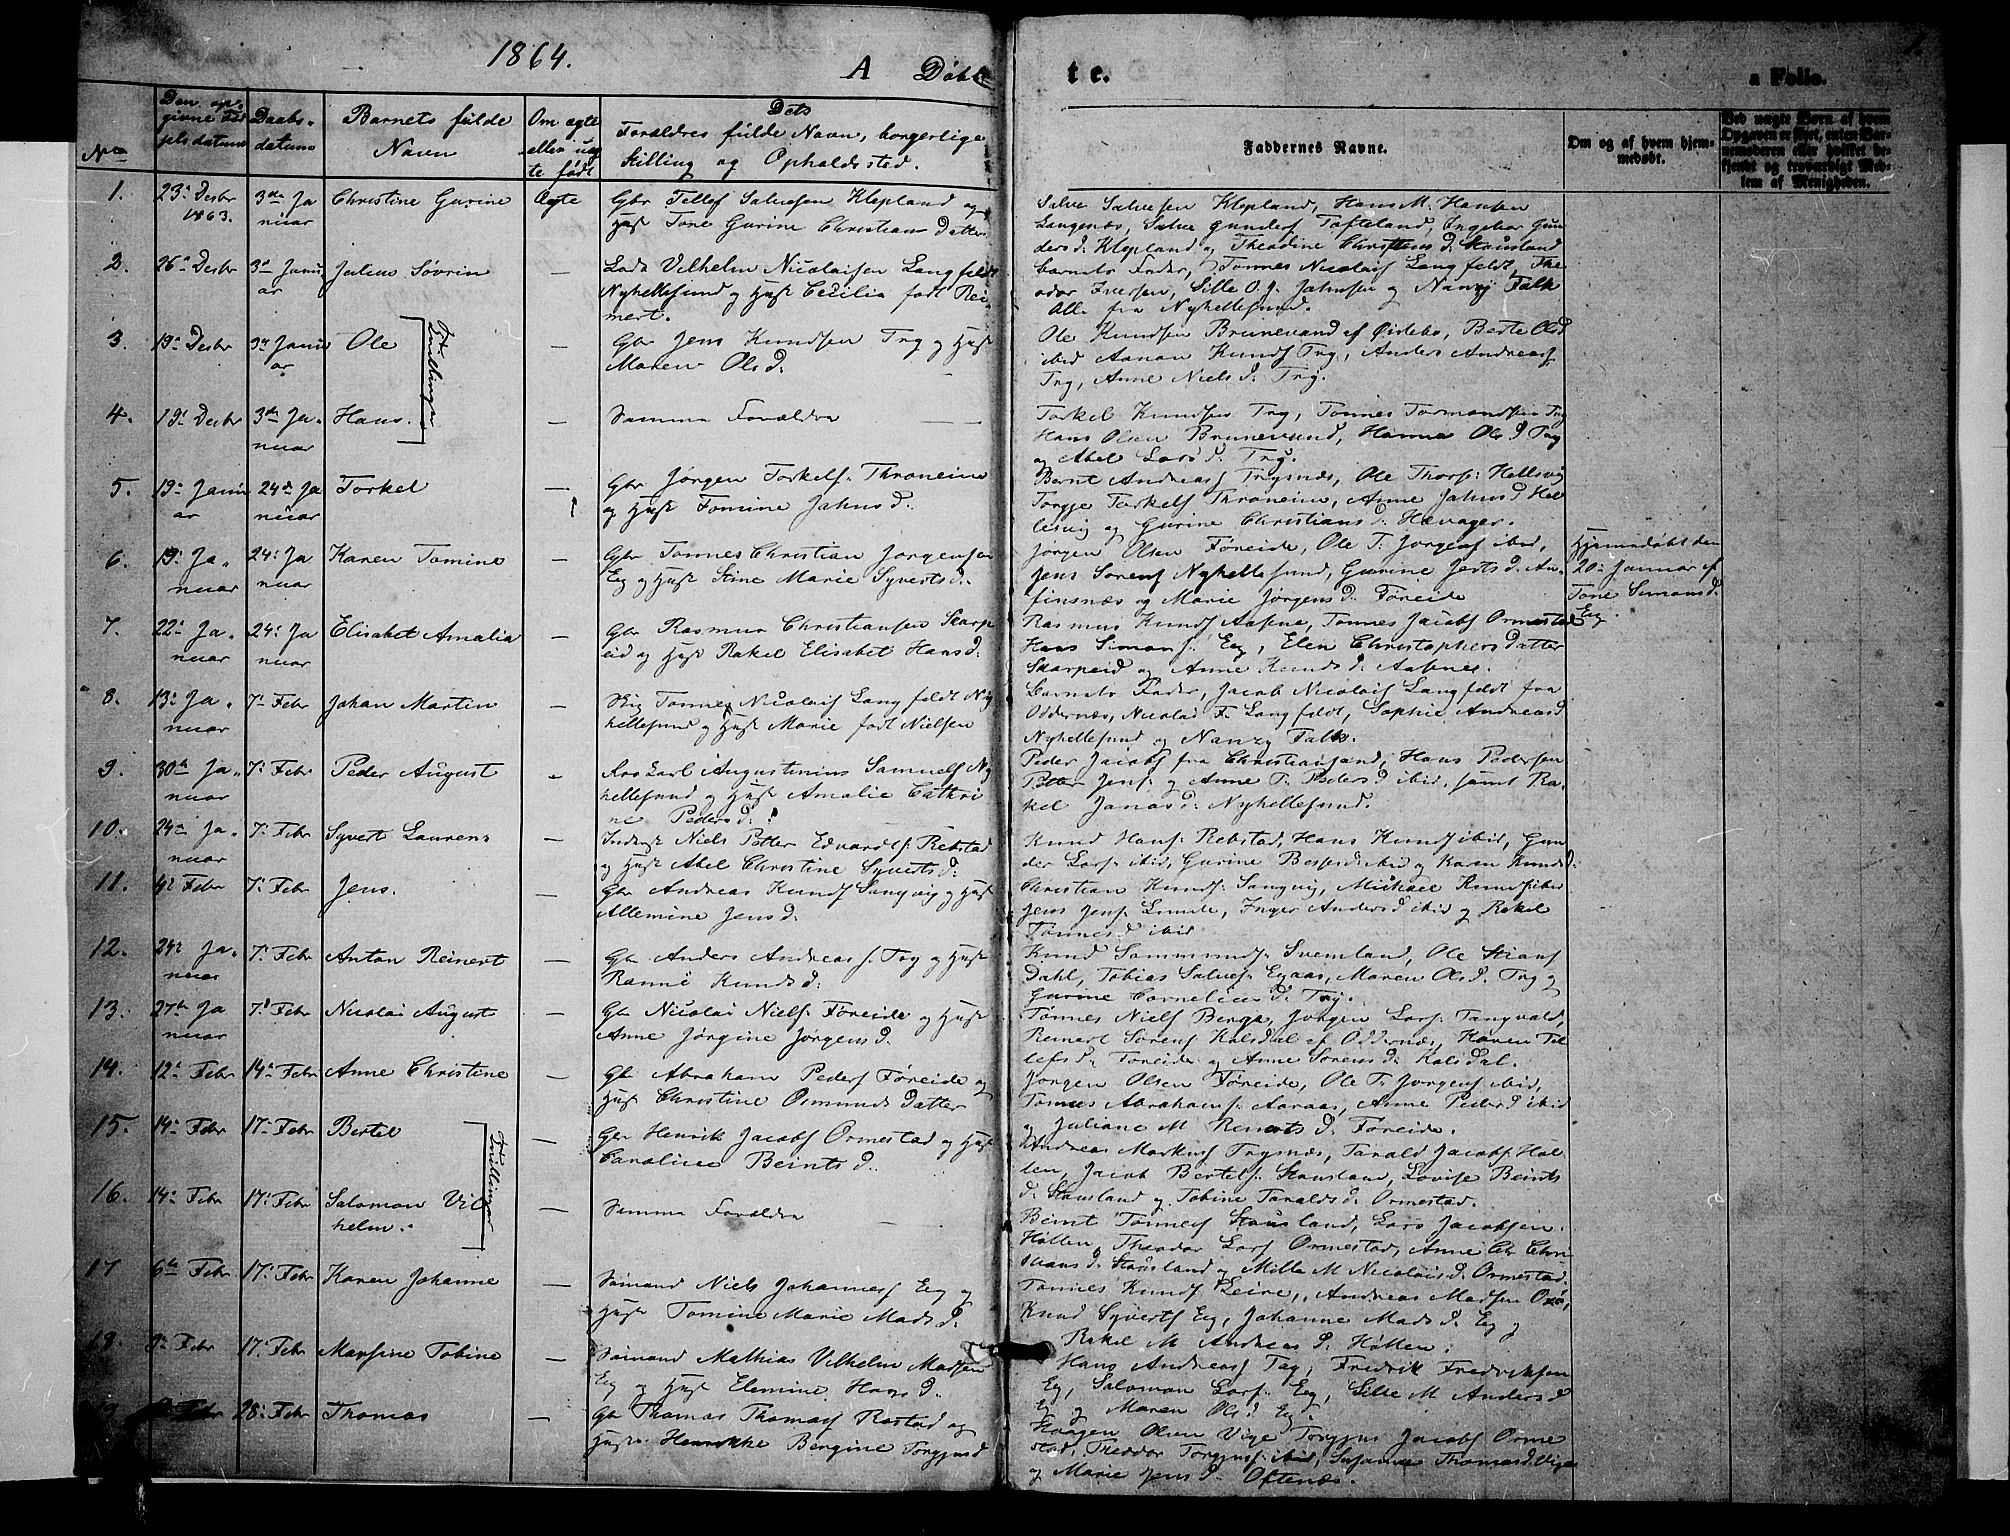 1864. A Døbte. a Folio. 1.
No
Den opgivne Fødselsdatum
Daabsdatum
Barnets fulde Navn
Om ægte eller uægte født
Dets Forældres fulde Navn, borgerlige Stilling og Opholdssted.
Faddernes Navne.
Om og af hvem hjemmedøbt.
Ved uægte Børn af hvem Opgaven er skeet, enten Barnemoderen eller hvilket bekjendt og troværdigt Medlem af Menigheden.
1. 23de Desbr 1863. 3die Januar Christine Gurine Ægte Gbr Tellef Salvesen Klepland og
Hust Tone Gurine Christians Datter
Salve Salvesen Klepland, Hans M. Hansen
Langenæs, Salve Gunders Tofteland, Ingebor Gun
ders d. Klepland og Theodine Christens d. Stousland
2. 26de Desbr 3de Januar Julius Søvrin — Lods Vilhelm Nicolaisen Langfeldt
Nyhellesund og Hust Cecilia født Rei
mert.
barnets Fader, Tønnes Nicolais Langfeldt, The
odor Iversen, Sille O. J. Jahnsen og Nanzy Falk
Alle fra Nyhellesund.
3. 19de Desbr 3de Januar Ole Tvillinger — Gbr Jens Knudsen Try og Hust
Maren Ols d.
Ole Knudsen Brunevand af Øislebø, Berte Ols d
ibid Aanon Knuds Try, Anders Andreass
Try, Anne Niels d. Try.
4. 19de Desbr 3die Januar Hans. — Samme Forældre
Torkel Knudsen Try, Tønnes Tormondsen Try
Hans Olsen Brunevand, Hanna Ols d Try
og Abel Lars d. Try.
5. 19de Januar 24de Januar Torkel — Gbr Jørgen Torkels. Throneim
og Hust Tomine Jahns d.
Bernt Andreas Trysnæs, Ole Thors. Hellsvig
Torgje Torkels Throneim, Anne Jahns d Hel
lesvig og Gurine Christians d. Hævager.
6. 19: Januar 24: Januar Karen Tomine — Gbr Tønnes Christian Jørgensen
Eeg og Hust Stine Marie Syverts d.
Jørgen Olsen Føreide, Ole T. Jørgens ibid,
Jens Sørens Nyhellesund, Gurine Jerts d. An
finsnæs og Marie Jørgens d. Føreide
Hjemmedøbt den
20de Januar af
Tone Simons d.
Eeg.
7. 22de Januar 24: Januar Elisabet Amalia — Gbr Rasmus Christiansen Skarp
eid og Hust Rakel Elisabet Hans d.
Rasmus Knuds Aasene, Tønnes Jacobs Ormestad
Hans Simons. Eeg, Elen Christophers datter
Skarpeid og Anne Knuds d. Aasenes.
8. 13: Januar 7: Febr Johan Martin — Tønnes Nicolais Langfeldt Ny
hellesund og Hust Marie født Nielsen
barnets Fader, Jacob Nicolais Langfeldt fra
Oddernæs, Nicolai F. Langfeldt, Sophie Andreas d
Nyhellesund og Nanzy Falk.
9. 30te Januar 7: Febr Peder August — Carl Augustinius Samuels Ny
hellesund og Hust Amalie Cathri
ne Peders d.
Peder Jacobs fra Christiansand, Hans Pedersen
Petter Jens. og Anne T. Peders d ibid, samt Ra
kel Jonas d. Nyhellesund.
10. 24de Januar 7: Febr Syvert Laurens — Inderst Niels Petter Edvards. Rebstad
og Hust Abel Christine Syverts d.
Knud Hans. Rebstad, Hans Knuds ibid, Gun
der Lars. ibid, Gurine Bespers d ibid og Karen Knuds d.
11. 4de Febr 7: Febr Jens. — Gbr Andreas Knuds Sangvig og Hust
Allemine Jens d.
Christian Knuds. Sangvig, Michael Knuds ibid
Jens Jens. Lunde, Inger Anders d ibid og Rakel
Tønnes d ibid
12. 24de Januar 7: Febr Anton Reinert — Gbr Anders Andreas s. Try og Hust
Ranni Knuds d.
Knud Sammunds. Svemland, Ole Stians
Dahl, Tobias Salves. Egaas, Maren Ols d. Try og
Gurine Cornelius d. Try.
13. 27de Januar 7: Febr Nicolai August — Gbr Nicolai Niels. Føreide og Hust
Anne Jørgine Jørgens d.
Tønnes Niels Berge, Jørgen Lars. Tangvald,
Reinert Sørens Kolsdal af Oddernæs, Karen Tel
lefs d. Føreide og Anne Sørens d. Kolsdal.
14. 12de Febr 14de Febr Anne Christine — Gbr Abraham Peders Føreide og
Hust Christine Osmunds Datter
Jørgen Olsen Føreide, Ole T. Jørgens ibid,
Tønnes Abrahams. Aaraas, Anne Peders d ibid
og Juliane M Reinerts d. Føreide.
15. 14de Febr 17de Febr Bertel Tvillinger — Gbr Henrik Jacobs Ormestad og Hust
Caroline Beints d.
Andreas Markus Trysnæs, Tarald Jacobs. Høl
len, Jacob Bertels. Stousland, Lovise Beints
d. Stousland og Tobine Taralds d. Ormestad.
16. 14de Febr 17: Febr Salomon Vil
helm. — Samme Forældre
Beint Tønnes Stousland, Lars Jacobsen
Høllen, Theodor Lars Ormestad, Anne Chr. Chri
stians d. Stousland og Mille M Nicolais d. Ormestad.
17 6te Febr 17: Febr Karen Johanne — Sømand Niels Johannes Eeg og
Hust Tomine Marie Mads d.
Tønnes Knuds Leire, Andreas Madsen Oxø,
Knud Syverts Eeg, Johanne Mads d. Eeg og
Rakel M Andreas d. Høllen.
18. 9de Febr 17: Febr Marsine Tobine — Sømand Mathias Vilhelm Madsen
Eeg og Hust Elemine Hans d.
Hans Andreas Tag, Fredrik Fredriksen
Eeg, Salomon Lars. Eeg, Sille M Anders d
Eg og Maren Ols d Eeg.
19 Febr 28: Febr Thomas — Gbr Thomas Thomas Rostad og
Hust. Henrikke Bergine Torgjus d
Haagen Olsen Vige Torgjus Jacobs Orme
stad, Theodor Torgjus. ibid, Susanne Thomas d. Vige
og Marie Jens d. Oftenæs.